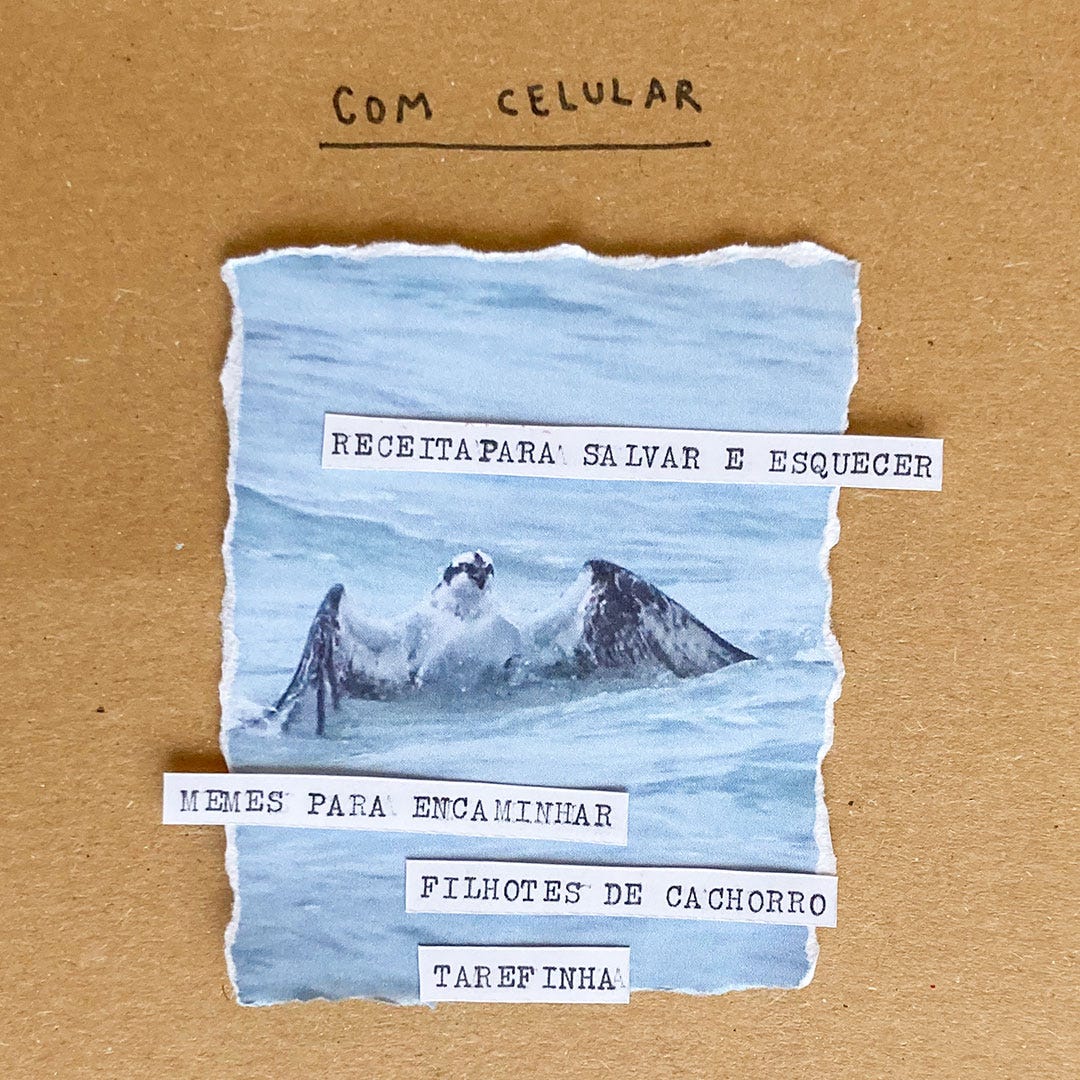 COM CELULAR
RECEITAPARA SALVAR E ESQUECER
MEMES PARA ENCAMINHAR
FILHOTES DE CACHORRO
TAREFINHA